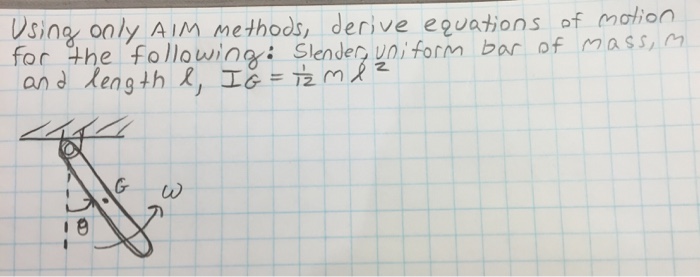 Using only AIM methods, derive equations of motion
for the following: Slender, uniform bar of mass, m
and length l, IG = 1/12 m l²
G
ω
θ